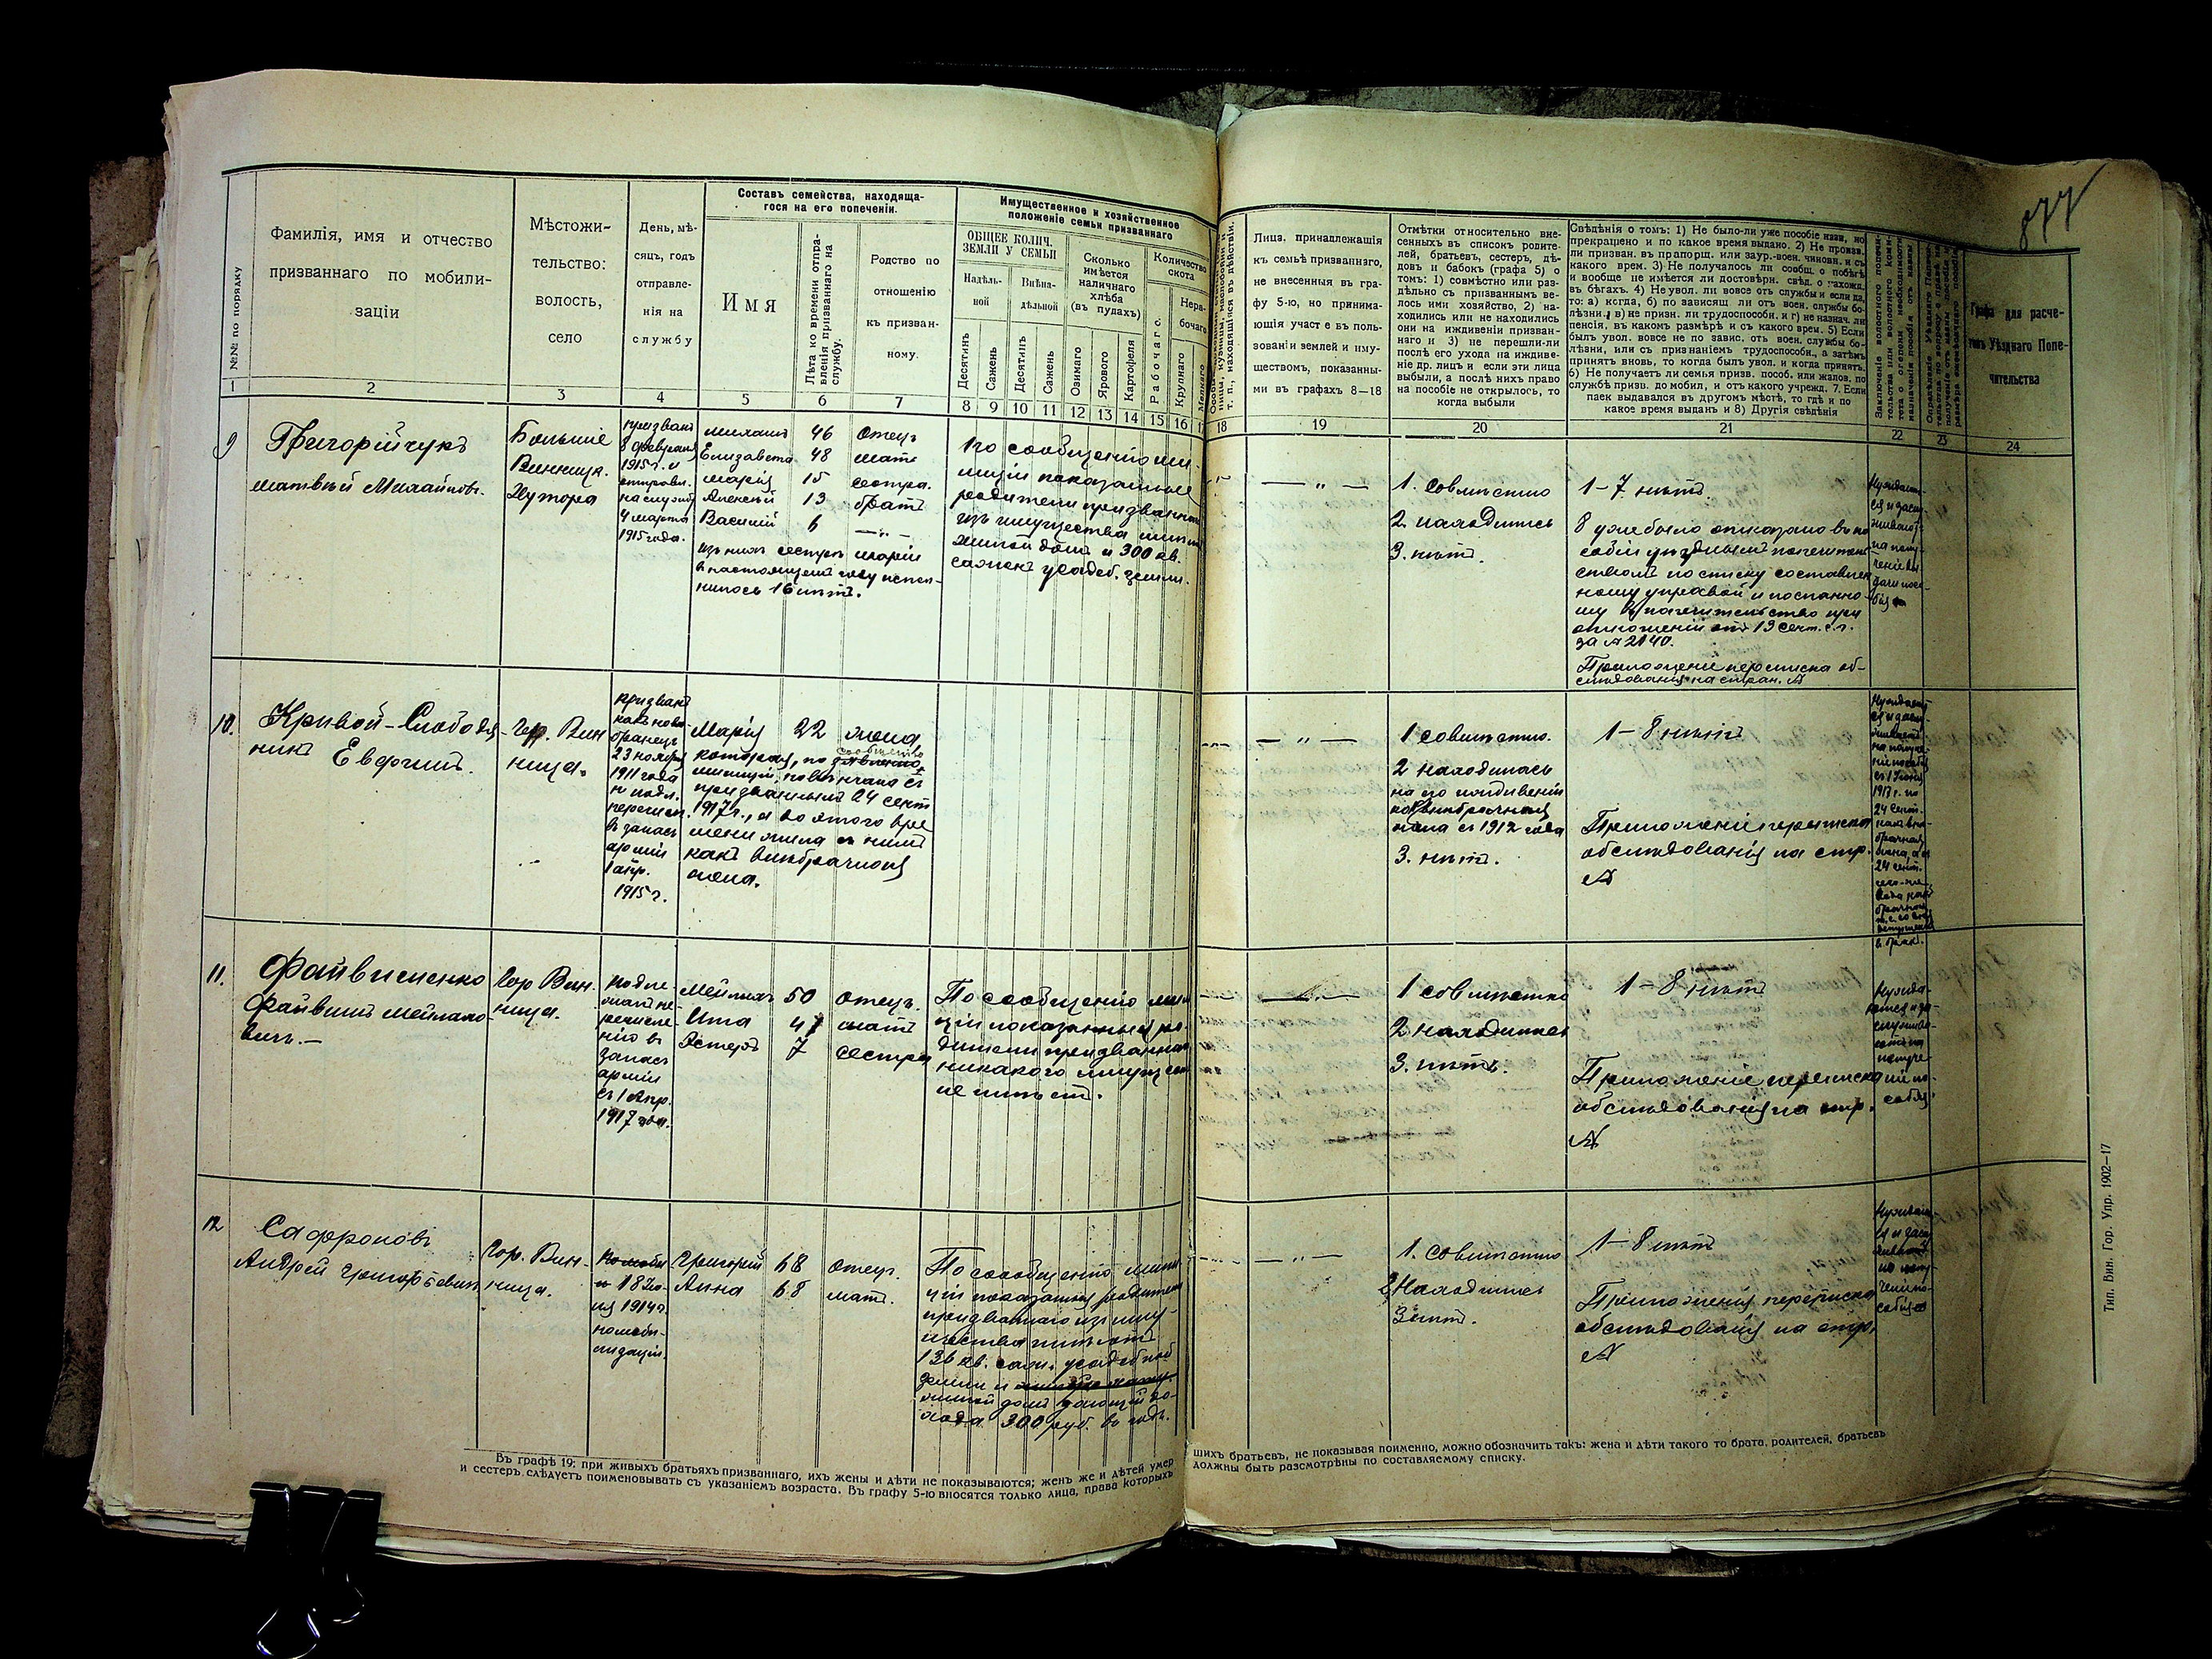 877
№№ по порядку
Фамилія, имя и отчество
призваннаго по мобили-
заціи
Мѣстожи-
тельство:
волость,
село
День, мѣ-
сяцъ, годъ
отправле-
нія на
службу
Составъ семейства, находяща-
гося на его попеченіи.
Имя
Лѣта ко времени отпра-
вленія призваннаго на
службу.
Родство по
отношенію
къ призван-
ному.
Имущественное и хозяйственное
положеніе семьи призваннаго
ОБЩЕЕ КОЛИЧ.
ЗЕМЛИ У СЕМЬИ
Надѣль-
ной
Внѣна-
дѣльной
Десятинъ
Сажень
Десятинъ
Сажень
Сколько
имѣется
наличнаго
хлѣба
(въ пудахъ)
Озимаго
Ярового
Картофеля
Количество
скота
Рабочаго.
Нера-
бочаго
Крупнаго
Мелкаго
т. п., находящіяся въ дѣйствіи.
Лица, принадлежащія
къ семьѣ призваннаго,
не внесенныя въ гра-
фу 5-ю, но принима-
ющія участ е въ поль-
зовані и землей и иму-
ществомъ, показанны-
ми въ графахъ 8—18
Отмѣтки относительно вне-
сенныхъ въ списокъ родите-
лей, братьевъ, сестеръ, дѣ-
довъ и бабокъ (графа 5) о
томъ: 1) совмѣстно или раз-
дѣльно съ призваннымъ ве-
лось ими хозяйство, 2) на-
ходились или не находились
они на иждивеніи призван-
наго и 3) не перешли-ли
послѣ его ухода на иждиве-
ніе др. лицъ и если эти лица
выбыли, а послѣ нихъ право
на пособіе не открылось, то
когда выбыли
Свѣдѣнія о томъ: 1) Не было-ли уже пособіе назн, но
прекращено и по какое время выдано. 2) Не произв.
ли призван. въ прапорщ. или заур.-воен. чиновн. и съ
какого врем. 3) Не получалось ли сообщ. о побѣгѣ
и вообще не имѣется ли достовѣрн. свѣд. о нахожд.
въ бѣгахъ. 4) Не увол. ли вовсе отъ службы и если да,
то: а) когда, б) по зависящ ли отъ воен. службы бо-
лѣзни, в) не призн. ли трудоспособн. и г) не назнач. ли
пенсія, въ какомъ размѣрѣ и съ какого врем. 5) Если
былъ увол. вовсе не по завис. отъ воен. службы бо-
лѣзни, или съ призканіемъ трудоспособн., а затѣмъ
принятъ вновь, то когда былъ увол. и когда принятъ.
6) Не получаетъ ли семья призв. пособ. или жалов. по
службѣ призв. до мобил, и отъ какого учрежд. 7. Если
паек выдавался въ другомъ мѣстѣ, то гдѣ и по
какое время выданъ и 8) Другія свѣдѣнія
Графа для расче-
товъ Уѣзднаго Попе-
чительства
1 2 3 4 5 6 7 8 9 10 11 12 13 14 15 16 1
18 19 20 21 22 23 24
9
Григорійчукъ
Матвѣй Михайлов.
Большіе
Винниц.
Хутора
призванъ
8 февраля
1915 г. и
отправл.
на службу
4 марта
1915 года.
Михаилъ 46 отецъ
Елизавета 48 мать
Марія 15 сестра.
Алексѣй 13 братъ
Василій 6 — „ —
изъ нихъ сестрѣ Маріи
въ настоящемъ году испол-
нилось 16 лѣтъ.
По сообщенію ми-
лиціи показанные
родители призванн
изъ имущества имѣютъ
жилой домъ и 300 кв.
сажень усадеб. земли.
— „ —
1. Совмѣстно
2. находились
3. нѣтъ.
1—7 нѣтъ.
8 уже было отказано въ по
собіи уѣзднымъ попечитель
ствомъ по списку составлен
ному управой и посланно-
му въ попечительство при
отношеніи отъ 13 сент. с. г.
за № 2140.
Приложеніе переписка об-
слѣдованія на стран. №
10.
Кривой-Слободя-
никъ Евфимъ.
Гор. Вин
ница.
призванъ
какъ ново-
бранецъ
23 ноября
1911 года
и подл.
перечисл.
въ запасъ
арміи
1 апр.
1915 г.
Марія 22 жена
которая, по
сообщенію
милиціи повѣнчана съ
призваннымъ 24 сент
1917 г., а до этого вре
мени жила съ нимъ
какъ внѣбрачная
жена.
— „ —
1 совмѣстно.
2 находилась
на его иждивеніи
какъ внѣбрачная
жена съ 1912 года
3. нѣтъ.
1—8 нѣтъ
Приложеніе переписка
обслѣдованія на стр.
№
11.
Файвишенко
Файвишъ Мейлахо-
вичъ.—
Гор Вин.
ница.
подле
жалъ пе-
речисле-
нію въ
запасъ
арміи
съ 1 Апр.
1917 года.
Мейлахъ 50 отецъ.
Ита 47 мать
Эстеръ 7 сестра
По сообщенію мили
ціи показанные ро-
дители призваннаго
никакого имуществ
не имѣютъ.
— „ —
1 совмѣстно
2 находились
3. нѣтъ.
1—8 нѣтъ
Приложеніе переписка
обслѣдованія на стр.
№
Нужда-
ются и за-
служива-
ютъ на
получе-
ніе по-
собія.
12
Сафроновъ
Андрей Григорьевичъ
Гор. Вин-
ница.
18 Iю-
ля 1914 г
по моби-
лизаціи.
Григорій 68 отецъ.
Анна 68 мать.
По сообщенію мили
ціи показанные родители
призваннаго изъ иму-
щества имѣютъ
136 кв. саж. усадебной
земли и
жилой домъ дающій до-
хода 300 руб. въ годъ.
— „ —
1. совмѣстно
2 Находились
3 нѣтъ.
1—8 нѣтъ
Приложенія переписка
обслѣдованія на стр.
№
Въ графѣ 19: при живыхъ братьяхъ призваннаго, ихъ жены и дѣти не показываются; женъ же и дѣтей умер
шихъ братьевъ, не показывая поименно, можно обозначить такъ: жена и дѣти такого то брата, родителей, братьевъ
и сестеръ слѣдуетъ поименовывать съ указаніемъ возраста. Въ графу 5-ю вносятся только лица, права которыхъ
должны быть разсмотрѣны по составляемому списку.
Тип. Вин. Гор. Упр. 1902—17